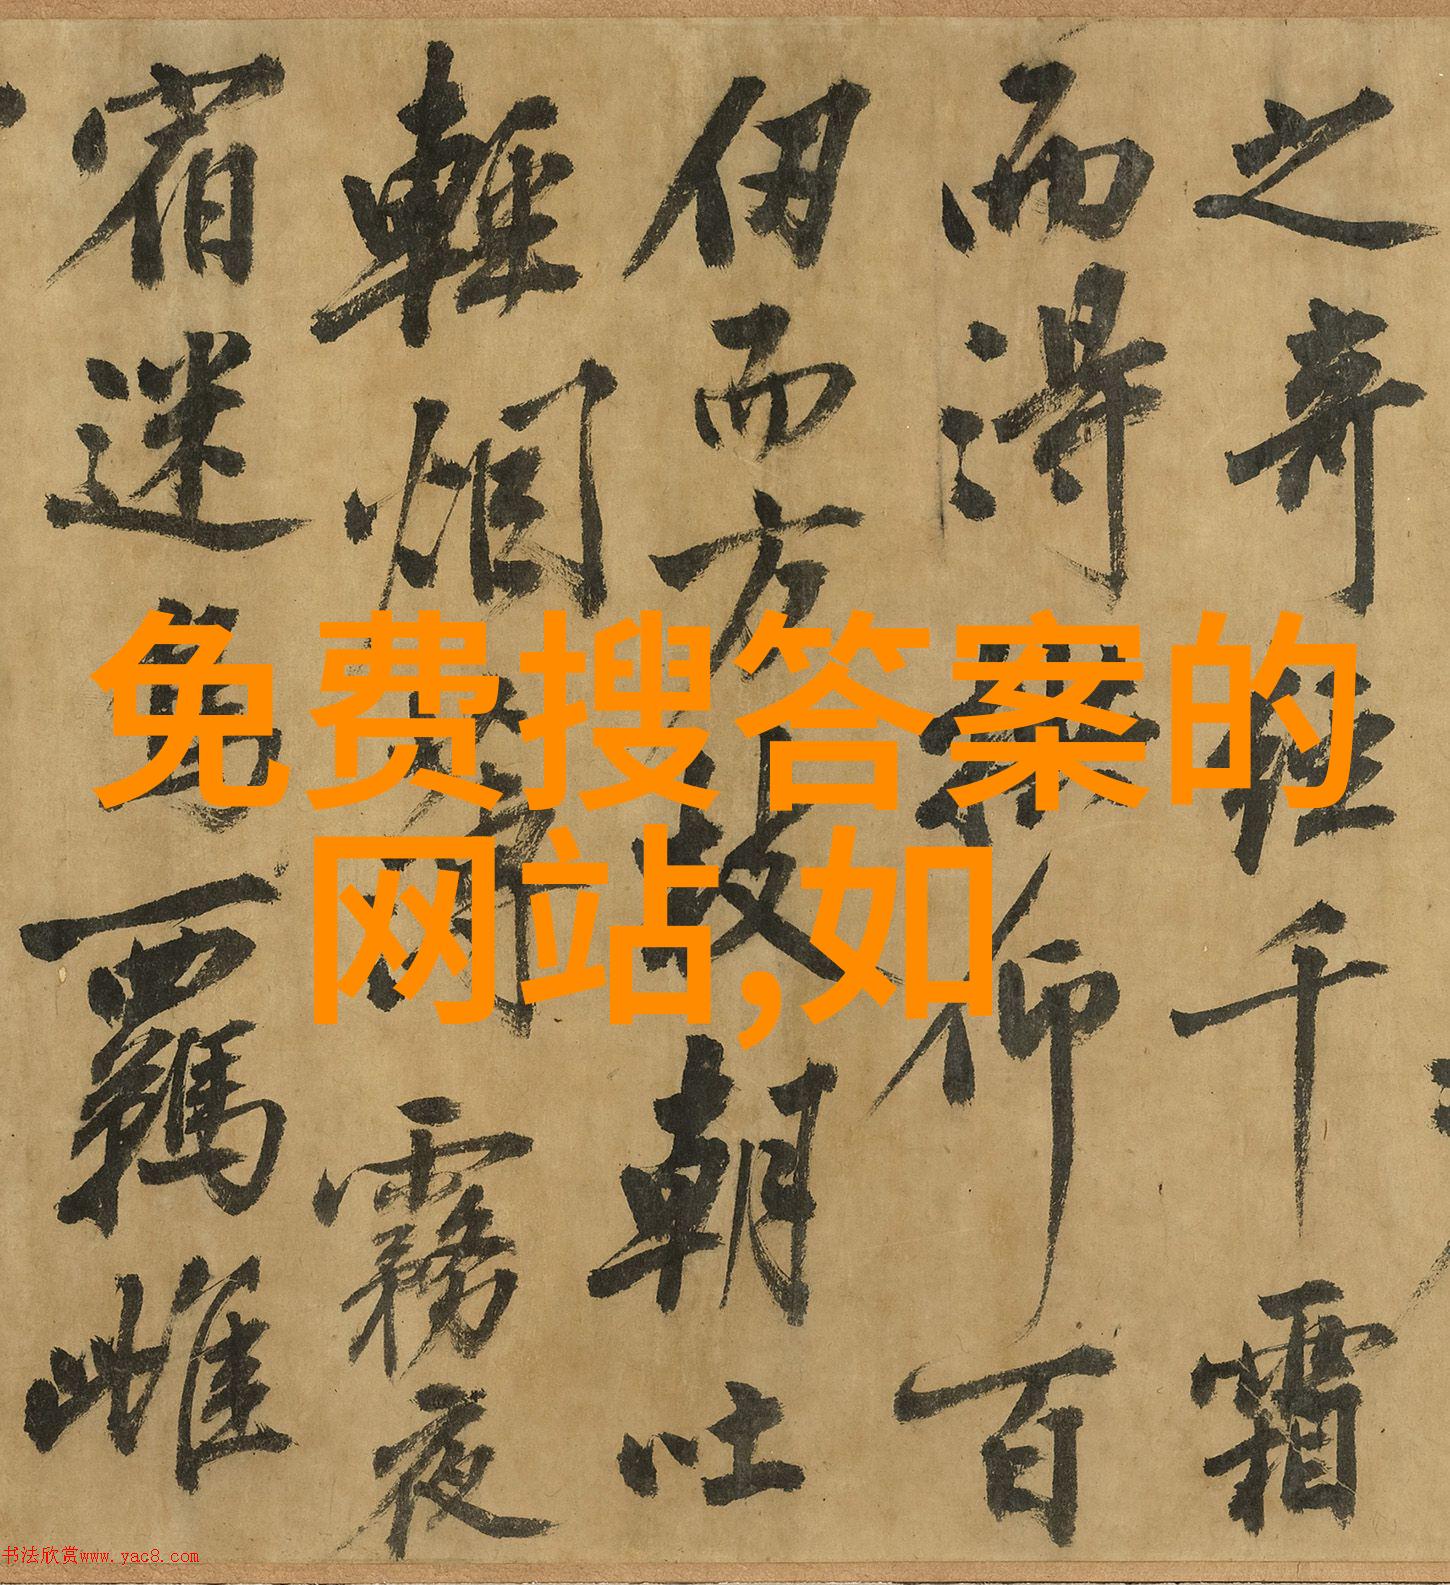 之奇經千霜
而得仰百
仞而方故朝吐
輕烟霧夜
宿迷鳥羈雌
免费搜答案的
网站,如
书法欣赏www.yac8.com